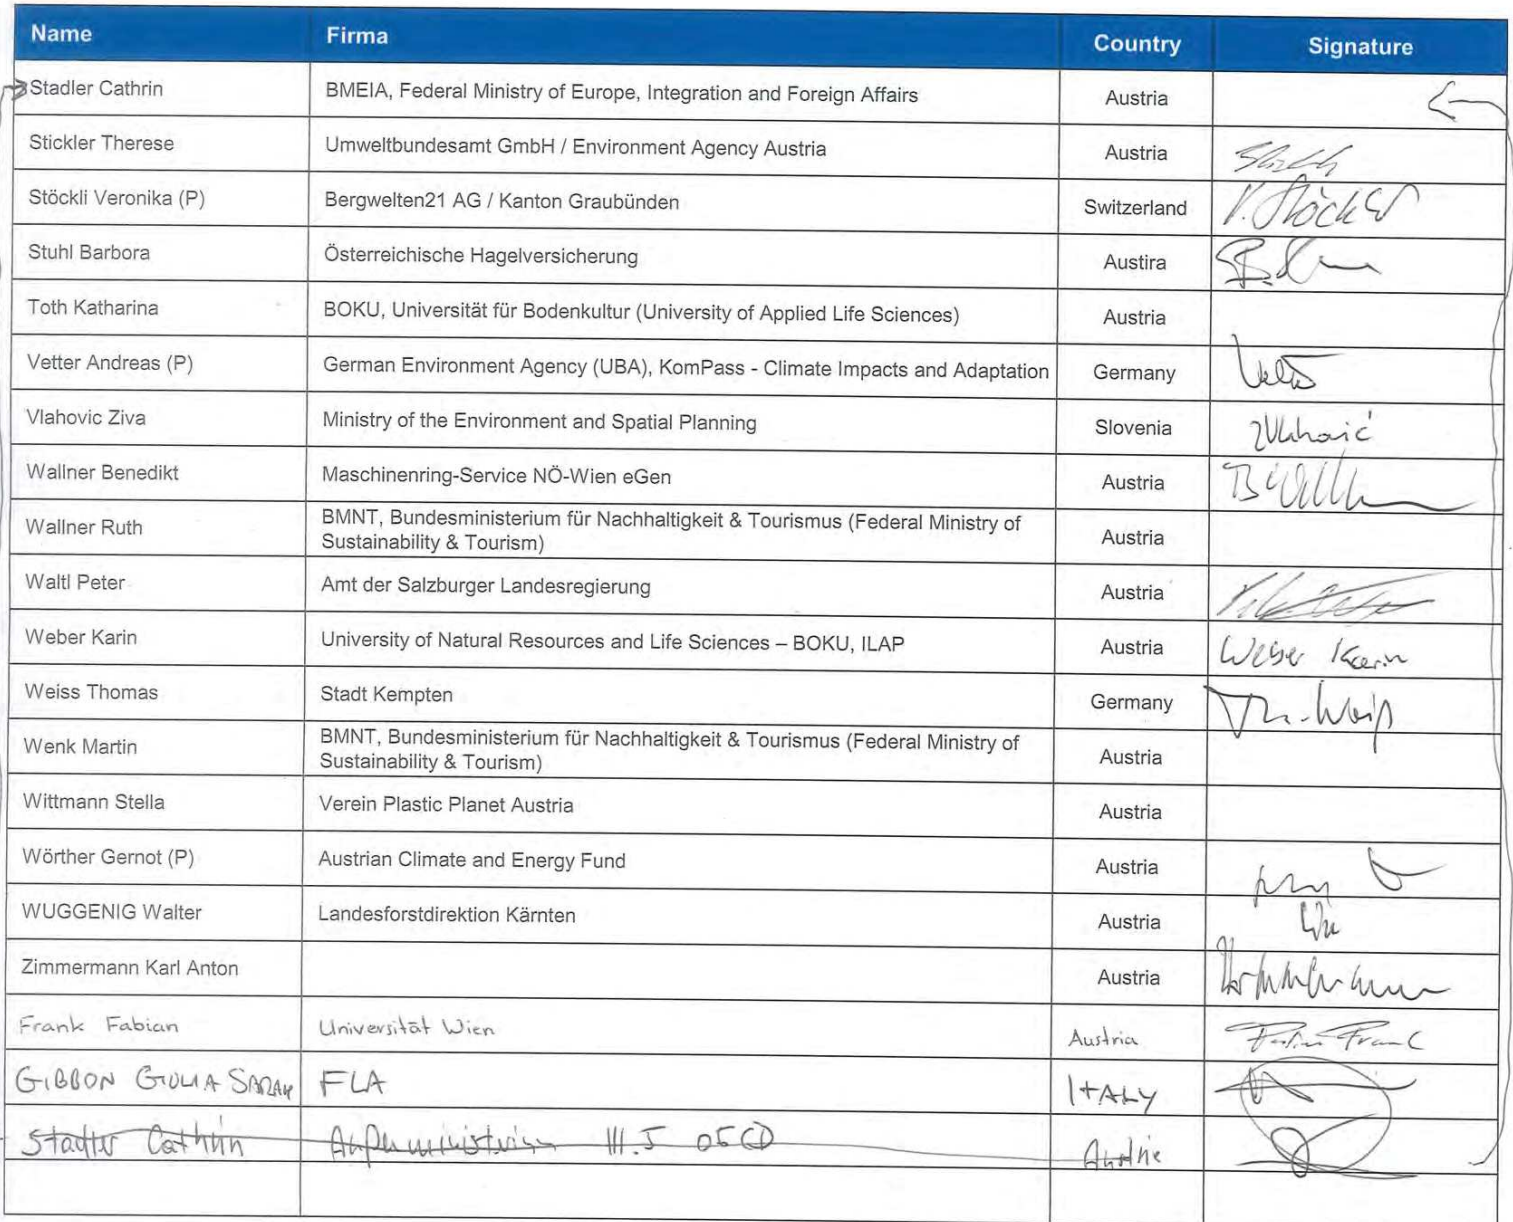 Name Firma Country Signature
Stadler Cathrin BMEIA, Federal Ministry of Europe, Integration and Foreign Affairs Austria
Stickler Therese Umweltbundesamt GmbH / Environment Agency Austria Austria
Stöckli Veronika (P) Bergwelten21 AG / Kanton Graubünden Switzerland V. Stöckli
Stuhl Barbora Österreichische Hagelversicherung Austira
Toth Katharina BOKU, Universität für Bodenkultur (University of Applied Life Sciences) Austria
Vetter Andreas (P) German Environment Agency (UBA), KomPass - Climate Impacts and Adaptation Germany
Vlahovic Ziva Ministry of the Environment and Spatial Planning Slovenia
Wallner Benedikt Maschinenring-Service NÖ-Wien eGen Austria
Wallner Ruth BMNT, Bundesministerium für Nachhaltigkeit & Tourismus (Federal Ministry of
Sustainability & Tourism) Austria
Waltl Peter Amt der Salzburger Landesregierung Austria
Weber Karin University of Natural Resources and Life Sciences – BOKU, ILAP Austria Weber Karin
Weiss Thomas Stadt Kempten Germany Th. Weiß
Wenk Martin BMNT, Bundesministerium für Nachhaltigkeit & Tourismus (Federal Ministry of
Sustainability & Tourism) Austria
Wittmann Stella Verein Plastic Planet Austria Austria
Wörther Gernot (P) Austrian Climate and Energy Fund Austria
WUGGENIG Walter Landesforstdirektion Kärnten Austria
Zimmermann Karl Anton Austria
Frank Fabian Universität Wien Austria Fabian Frank
GIBBON GIULIA SARAH FLA ITALY
Stadler Cathrin Außenministerium III.5 OECD Austria